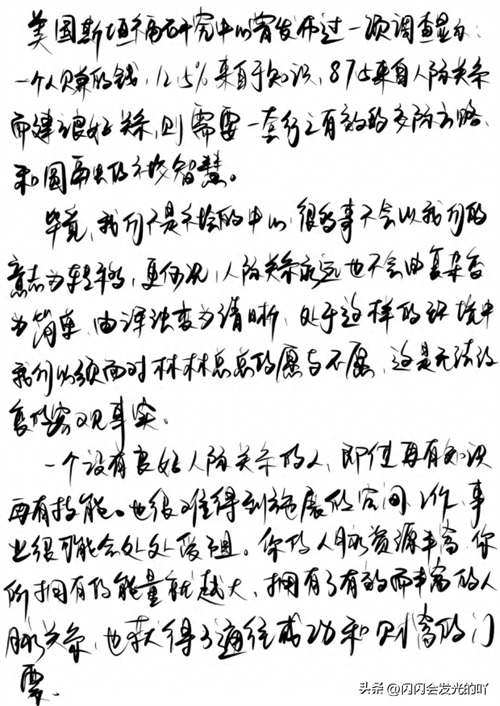 美国斯坦福研究中心曾发布过一项调查显示:
一个人赚的钱,12.5%来自于知识,87.5来自人际关系
而建立很好关系,则需要一套行之有效的交际方略,
和圆融的社交智慧。
毕竟,我们不是社会的中心,很多事不会以我们的
意志为转移,更何况,人际关系永远也不会由复杂变
为简单,由浑浊变为清晰,处于这样的环境中
我们必须面对林林总总的愿与不愿,这是无法改
变的客观事实。
一个没有良好人际关系的人,即使再有知识
再有技能。也很难得到施展的空间,工作、事
业很可能会处处受阻。你的人脉资源丰富,你
所拥有的能量就越大,拥有了有效而丰富的人
脉关系,也获得了通往成功和财富的门
票.
头条 @闪闪会发光的吖